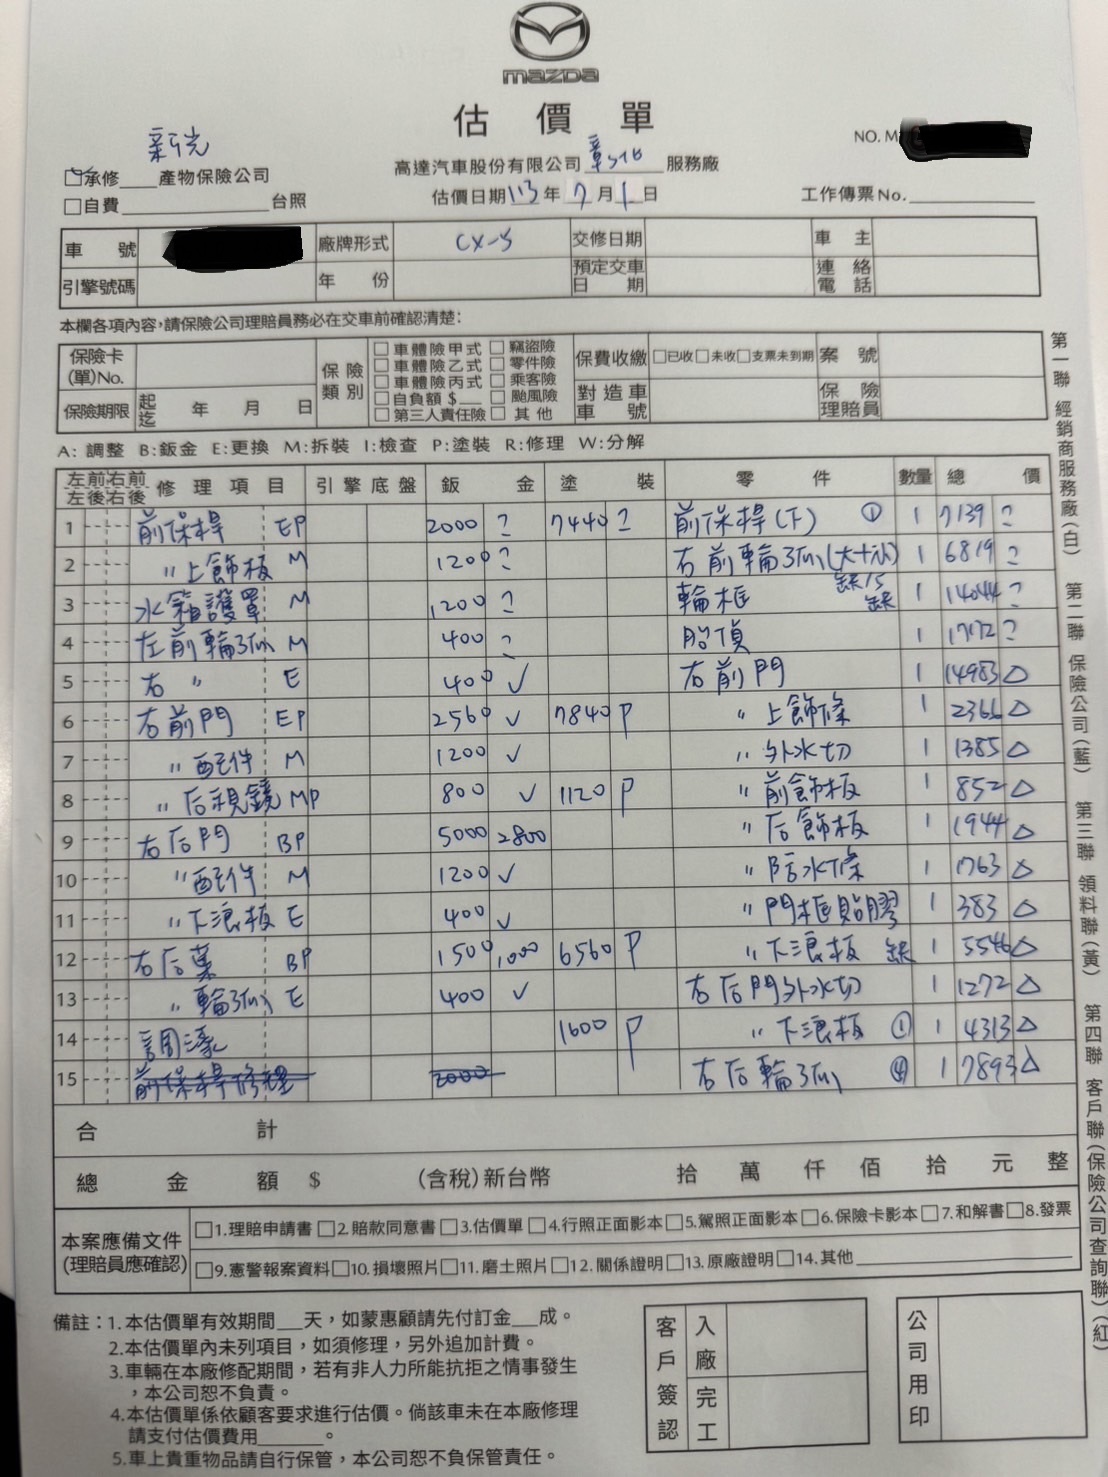 mazda
估價單
NO. M
新光
承修 產物保險公司
高達汽車股份有限公司 彰化 服務廠
□自費 台照
估價日期113年7月1日
工作傳票No.
車號 廠牌形式 CX-5 交修日期 車主
引擎號碼 年份 預定交車日期 連絡電話
本欄各項內容,請保險公司理賠員務必在交車前確認清楚:
保險卡(單)No. 保險類別 □車體險甲式 □竊盜險 保費收繳 □已收□未收□支票未到期 案號
□車體險乙式 □零件險
□車體險丙式 □乘客險
保險期限 起迄 年 月 日 □自負額$ □颱風險 對造車車號 保險理賠員
□第三人責任險 □其他
A:調整 B:鈑金 E:更換 M:拆裝 I:檢查 P:塗裝 R:修理 W:分解
左前右前左後右後 修理項目 引擎底盤 鈑金 塗裝 零件 數量 總價
1 前保桿 EP 2000 ? 7440 ? 前保桿(下) ① 1 7139 ?
2 〃上飾板 M 1200 ? 右前輪弧(大+小) 1 6819 ?
3 水箱護罩 M 1200 ? 輪框 缺 1 14044 ?
4 左前輪弧 M 400 ? 胎 1 1772 ?
5 右 〃 E 400 ✓ 右前門 1 14983 △
6 右前門 EP 2560 ✓ 7840 P 〃上飾條 1 2366 △
7 〃配件 M 1200 ✓ 〃外水切 1 1385 △
8 〃后視鏡 MP 800 ✓ 1120 P 〃前飾板 1 852 △
9 右后門 BP 5000 2800 〃后飾板 1 1944 △
10 〃配件 M 1200 ✓ 〃防水條 1 1763 △
11 〃下浪板 E 400 ✓ 〃門框貼膠 1 383 △
12 右后葉 BP 1500 1,000 6560 P 〃下浪板 缺 1 5546 △
13 〃輪弧 E 400 ✓ 右后門外水切 1 1272 △
14 調漆 1600 P 〃下浪板 ① 1 4313 △
15 前保桿修理 2000 右后輪弧 ④ 1 7893 △
合計
總金額 $ (含稅)新台幣 拾 萬 仟 佰 拾 元 整
本案應備文件
(理賠員應確認)
□1.理賠申請書 □2.賠款同意書 □3.估價單 □4.行照正面影本 □5.駕照正面影本 □6.保險卡影本 □7.和解書 □8.發票
□9.憲警報案資料 □10.損壞照片 □11.磨土照片 □12.關係證明 □13.原廠證明 □14.其他
備註:1.本估價單有效期間 天,如蒙惠顧請先付訂金 成。
2.本估價單內未列項目,如須修理,另外追加計費。
3.車輛在本廠修配期間,若有非人力所能抗拒之情事發生
,本公司恕不負責。
4.本估價單係依顧客要求進行估價。倘該車未在本廠修理
請支付估價費用 。
5.車上貴重物品請自行保管,本公司恕不負保管責任。
客戶簽認 入廠 完工
公司用印
第一聯 經銷商服務廠(白) 第二聯 保險公司(藍) 第三聯 領料聯(黃) 第四聯 客戶聯(保險公司查詢聯)(紅)